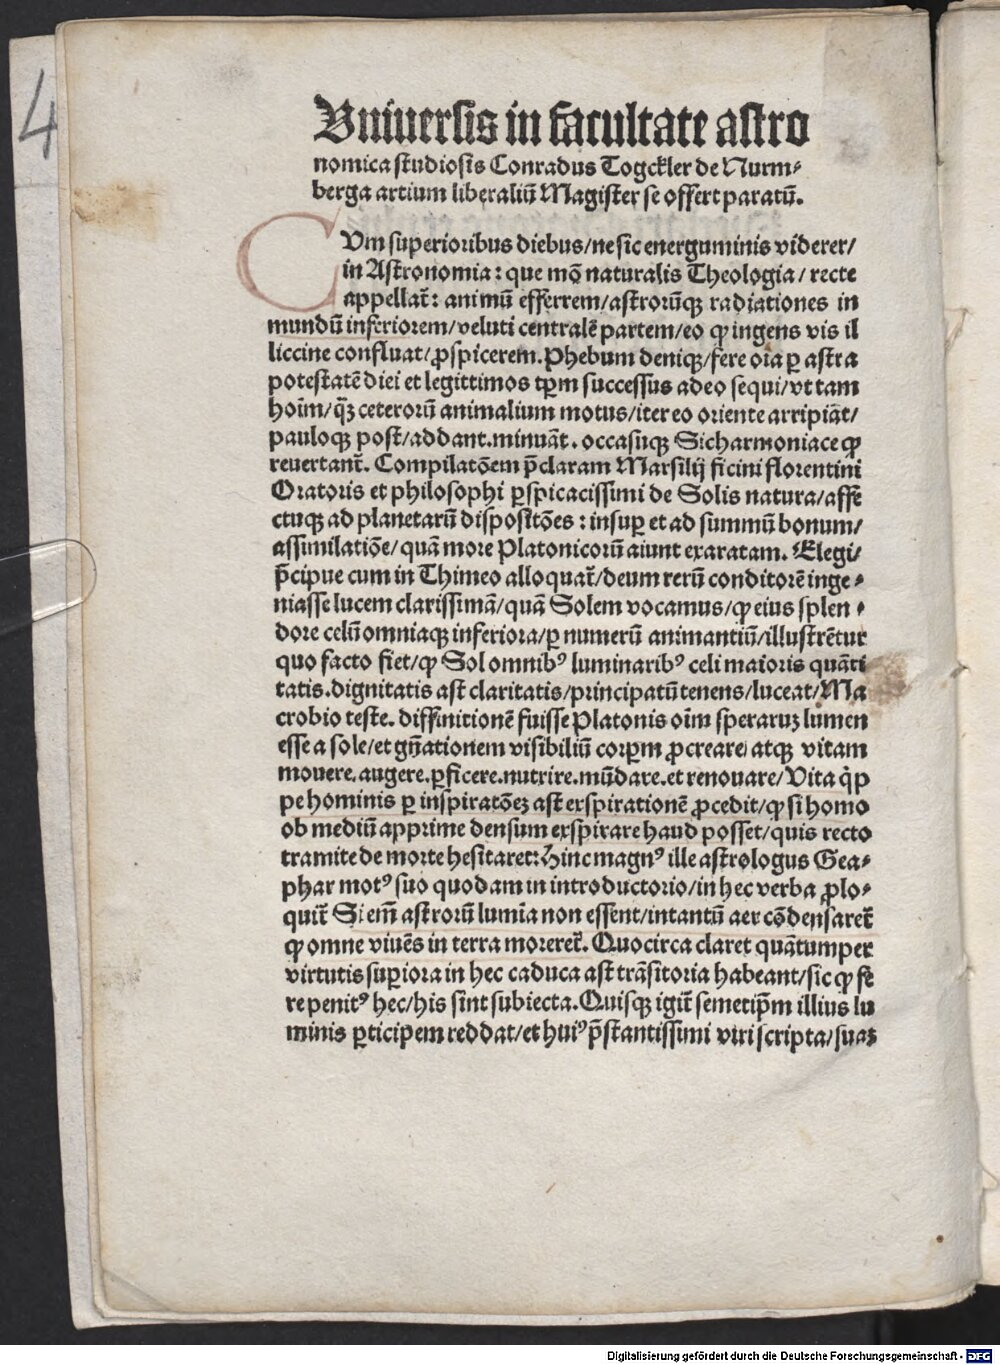 4
Vniuersis in facultate astro
nomica studiosis Conradus Togckler de Nurm⸗
berga artium liberaliū Magister se offert paratū.
CVm superioribus diebus/ne sic energuminis viderer/
in Astronomia: que mō naturalis Theologia/recte
appellat̄: animū efferrem/astrorūqꝫ radiationes in
mundū inferiorem/veluti centralē partem/eo ꝙ ingens vis il
liccine confluat/ꝓspicerem. Phebum deniqꝫ/fere oīa ꝑ astra
potestatē diei et legittimos tꝑm successus adeo sequi/vt tam
hoīm/qꝫ̄ ceterorū animalium motus/iter eo oriente arripiāt/
pauloqꝫ post/addant. minuāt. occasuqꝫ Sicharmoniace ꝙ
reuertant̄. Compilatōem p̄claram Marsilij ficini florentini
Oratoris et philosophi ꝑspicacissimi de Solis natura/affe
ctuqꝫ ad planetarū dispositōes: insuꝑ et ad summū bonum/
assimilatiōe/quā more Platonicorū aiunt exaratam. Elegi/
p̄cipue cum in Thimeo alloquat̄/deum rerū conditorē inge⸗
niasse lucem clarissimā/quā Solem vocamus/ꝙ eius splen⸗
dore celū omniaqꝫ inferiora/ꝑ numerū animantiū/illustrētur
quo facto fiet/ꝙ Sol omnibꝰ luminaribꝰ celi maioris quāti
tatis. dignitatis ast claritatis/principatū tenens/luceat/Ma
crobio teste. diffinitionē fuisse Platonis oīm speraruꝫ lumen
esse a sole/et gn̄ationem visibiliū corꝑm ꝓcreare/atqꝫ vitam
mouere. augere. ꝑficere. nutrire. mūdare. et renouare/Vita q̇ꝑ
pe hominis ꝑ inspiratōeꝫ ast exspirationē ꝓcedit/ꝙ si homo
ob mediū apprime densum exspirare haud posset/quis recto
tramite de morte hesitaret: Hinc magnꝰ ille astrologus Gea⸗
phar motꝰ suo quodam in introductorio/in hec verba ꝓlo⸗
quit̄ Si em̄ astrorū lumīa non essent/intantū aer cōdensaret̄
ꝙ omne viuēs in terra moreret̄. Quocirca claret quātumper
virtutis suꝑiora in hec caduca ast trāsitoria habeant/sic ꝙ fe
re penitꝰ hec/his sint subiecta. Quisqꝫ igit̄ semetip̄m illius lu
minis ꝑticipem reddat/et huiꝰ p̄stantissimi viri scripta/suaꝫ
Digitalisierung gefördert durch die Deutsche Forschungsgemeinschaft - DFG